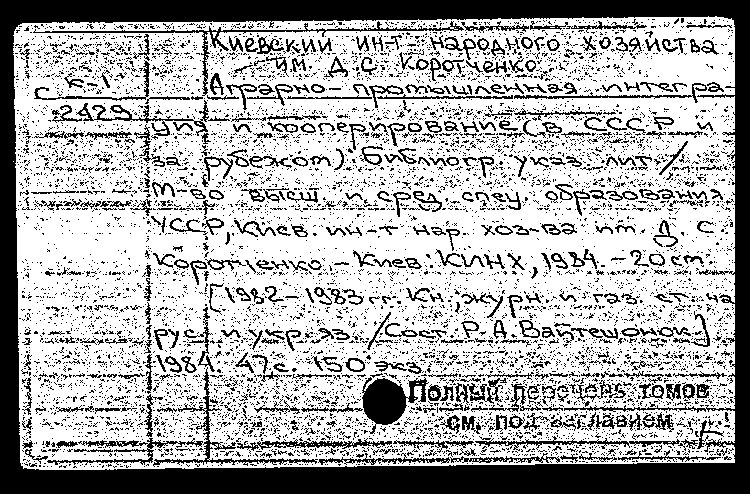 Киевский ин-т народного хозяйства
им. Д. С. Коротченко
К-1
с 2429
Аграрно-промышленная интегра-
ция и кооперирование (в СССР и
за рубежом): Библиогр. указ. лит. /
М-во высш. и сред. спец. образования
УССР, Киев. ин-т нар. хоз-ва им. Д. С.
Коротченко. – Киев: КИНХ, 1984. – 20 см.
[1982–1983 гг. Кн., журн. и газ. ст. на
рус. и укр. яз. / Сост. Р. А. Вайтешонок]
1984. 47 с. 150 экз.
Полный перечень томов
см. под заглавием